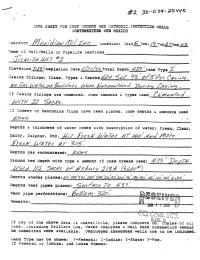 #2 30-039-25445
DATA SHEET FOR DEEP GROUND BED CATHODIC PROTECTION WELLS
NORTHWESTERN NEW MEXICO
Operator Meridian Oil Inc. Location: Unit
Name of Well/Wells or Pipeline Serviced
Jicarilla
Elevation Completion Date Total Depth Land Type
Casing Strings, Sizes, Types & Depths Set 98' Of 8" PVC Casing.
No Gas, Water, or Boulders Were Encountered During Casing.
If Casing Strings are cemented, show amounts & types used Cemented
With 22 Sacks.
If Cement or Bentonite Plugs have been placed, show depths & amounts used
None
Depths & thickness of water zones with description of water: Fresh, Clear,
Salty, Sulphur, Etc. Hit Fresh Water At 110' And More
Fresh Water At 305'.
Depths gas encountered: None
Ground bed depth with type & amount of coke breeze used: Depth.
Used 112 Sacks Of Asbury 218R
Depths anodes placed:
Depths vent pipes placed: Surface To 437'
Vent pipe perforations: Bottom 320'.
Remarks:
If any of the above data is unavailable, please indicate so. Copies of all
logs, including Drillers Log, Water Analyses & Well Bore Schematics should
be submitted when available. Unplugged abandoned wells are to be included.
Land Type may be shown: F-Federal; I-Indian; S-State; P-Fee.
If Federal or Indian, add Lease Number.